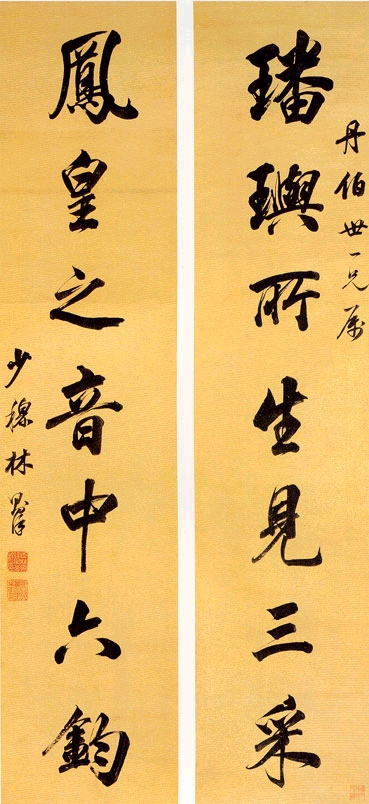 丹伯世一兄属
璠璵所生見三采
鳳皇之音中六鈞
少穆林則徐